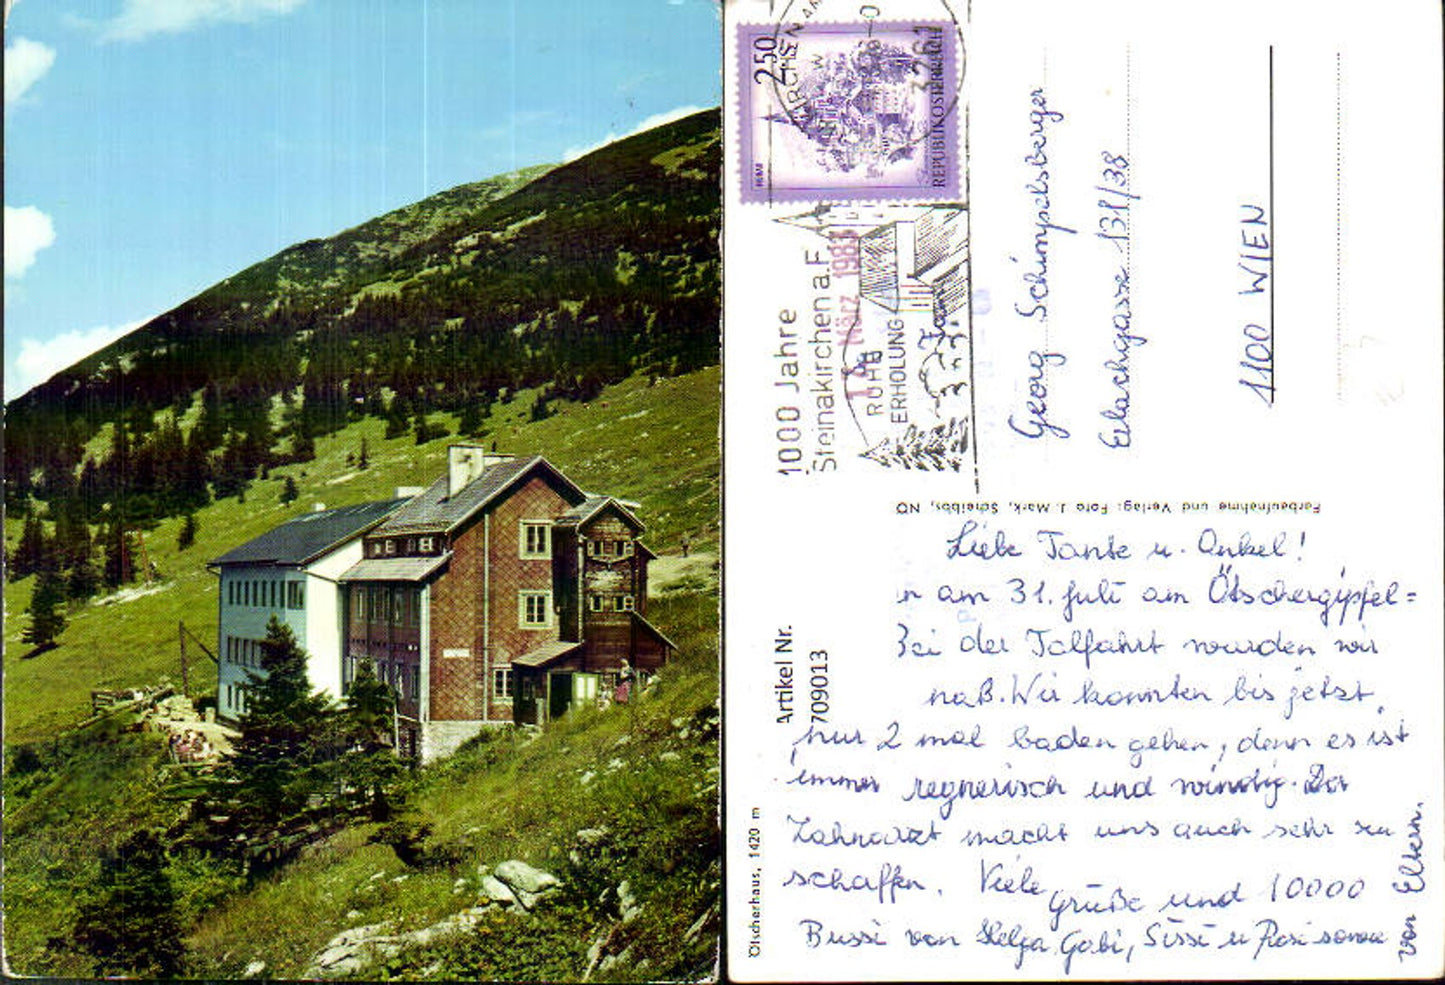 2.50
REPUBLIK ÖSTERREICH
3261
1000 Jahre
Steinakirchen a.F
RUHE
ERHOLUNG
März 1983
Georg Schimpelsberger
Erlachgasse 131/38
1100 WIEN
Farbaufnahme und Verlag: Foto J. Mark, Scheibbs, NÖ
Artikel Nr.
709013
Ötscherhaus, 1420 m
Liebe Tante u. Onkel!
am 31. Juli am Ötschergipfel=
Bei der Talfahrt wurden wir
naß. Wir konnten bis jetzt
nur 2 mal baden gehen, denn es ist
immer regnerisch und windig. Der
Zahnarzt macht uns auch sehr zu
schaffen. Viele Grüße und 10000
Bussi von Helga Gabi, Sissi u Resi sowie
von Eltern.